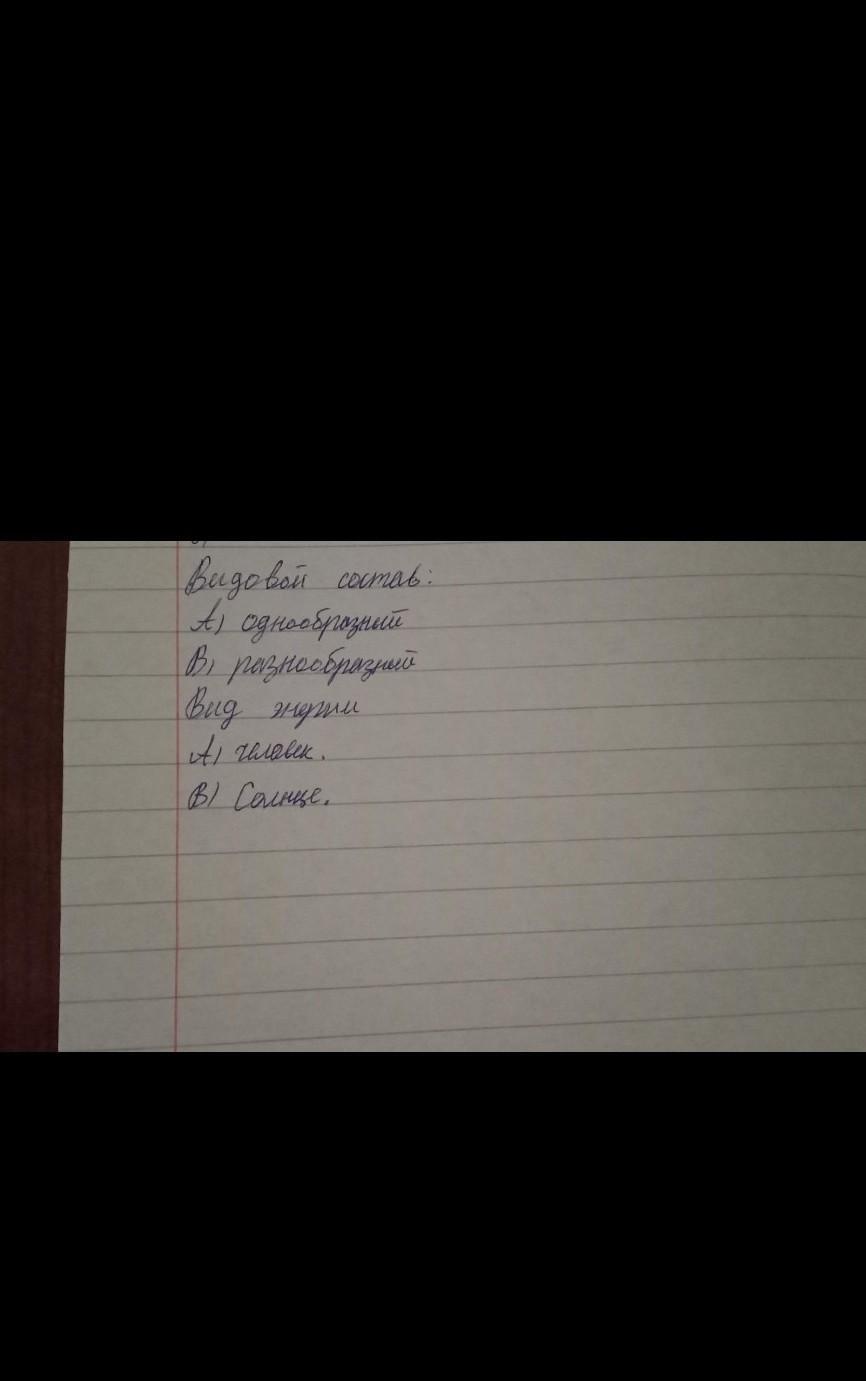 Видовой состав:
А) однообразный
В) разнообразный
Вид энергии
А) человек.
В) Солнце.